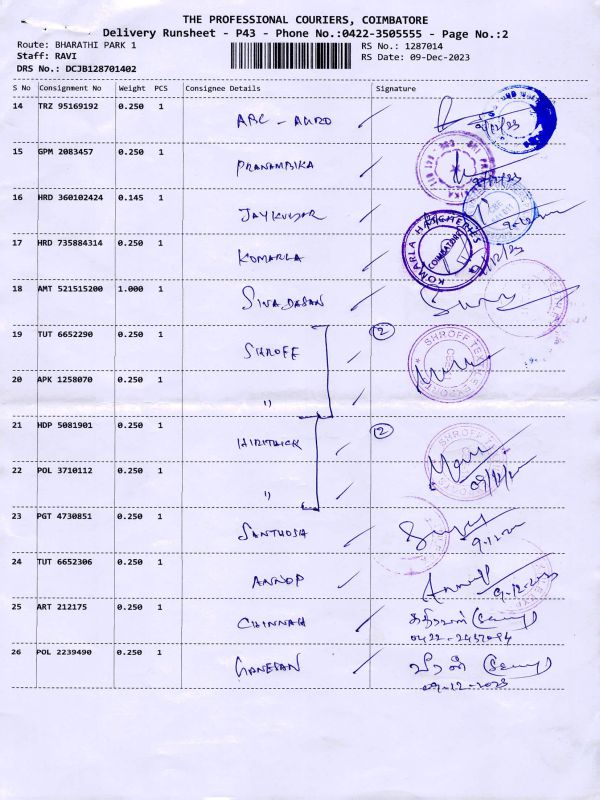 THE PROFESSIONAL COURIERS, COIMBATORE
Delivery Runsheet - P43 - Phone No.:0422-3505555 - Page No.:2
Route: BHARATHI PARK 1
RS No.: 1287014
Staff: RAVI
RS Date: 09-Dec-2023
DRS No.: DCJB128701402
S No Consignment No Weight PCS Consignee Details Signature
14 TRZ 95169192 0.250 1 ABC - AURO
15 GPM 2083457 0.250 1 PRANAMBIKA
16 HRD 360102424 0.145 1 JAYKUMAR
17 HRD 735884314 0.250 1 KOMARLA
KOMARLA HATCHERIES
COIMBATORE
18 AMT 521515200 1.000 1 SIVADASAN
19 TUT 6652290 0.250 1 SHROFF 2
SHROFF
20 APK 1258070 0.250 1 "
21 HDP 5081901 0.250 1 HIRITHICK 2
SHROFF
22 POL 3710112 0.250 1 "
23 PGT 4730851 0.250 1 SANTHOSH
24 TUT 6652306 0.250 1 ANNOP 9-12-2023
25 ART 212175 0.250 1 CHINNAH கதிரவன்
0422-2457094
26 POL 2239490 0.250 1 GANESAN வீரன்
09-12-2023